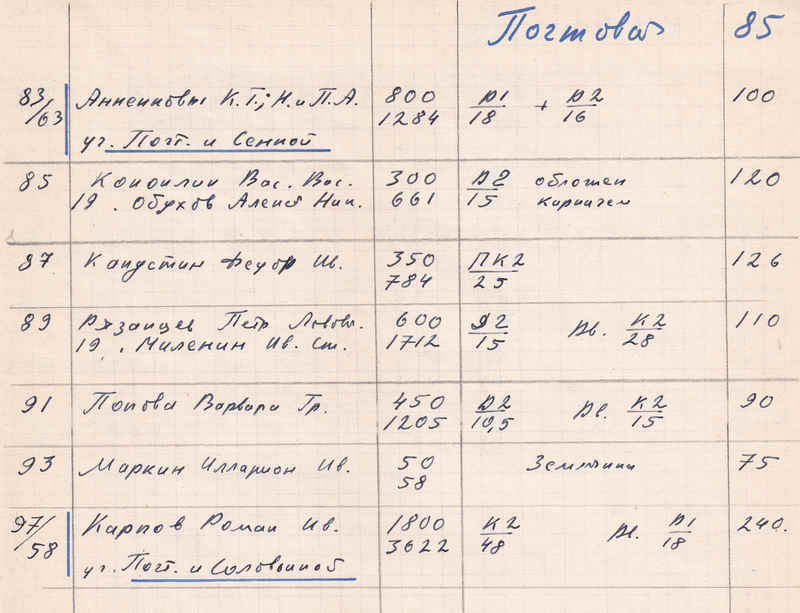 Почтовая 85
83/63 Анненковы К.Т.; Н. и П.А. 800 Д1 + Д2 100
1284 18 16
уг. Почт. и Сенной
85 Вас. Вас. 300 Д2 обложен 120
19. Обухов Алексей Ник. 661 15 кирпичем
87 Капустин Федор Ив. 350 ПК2 126
784 25
89 Рязанцев Петр 600 Д2 Дв. К2 110
19. Миленин Ив. Ст. 1712 15 28
91 Попова Варвара Гр. 450 Д2 Дв. К2 90
1205 10,5 15
93 Маркин Илларион Ив. 50 75
58
97/58 Карпов Роман Ив. 1800 К2 Дв. Д1 240.
3622 48 18
уг. Почт. и Соловьиной